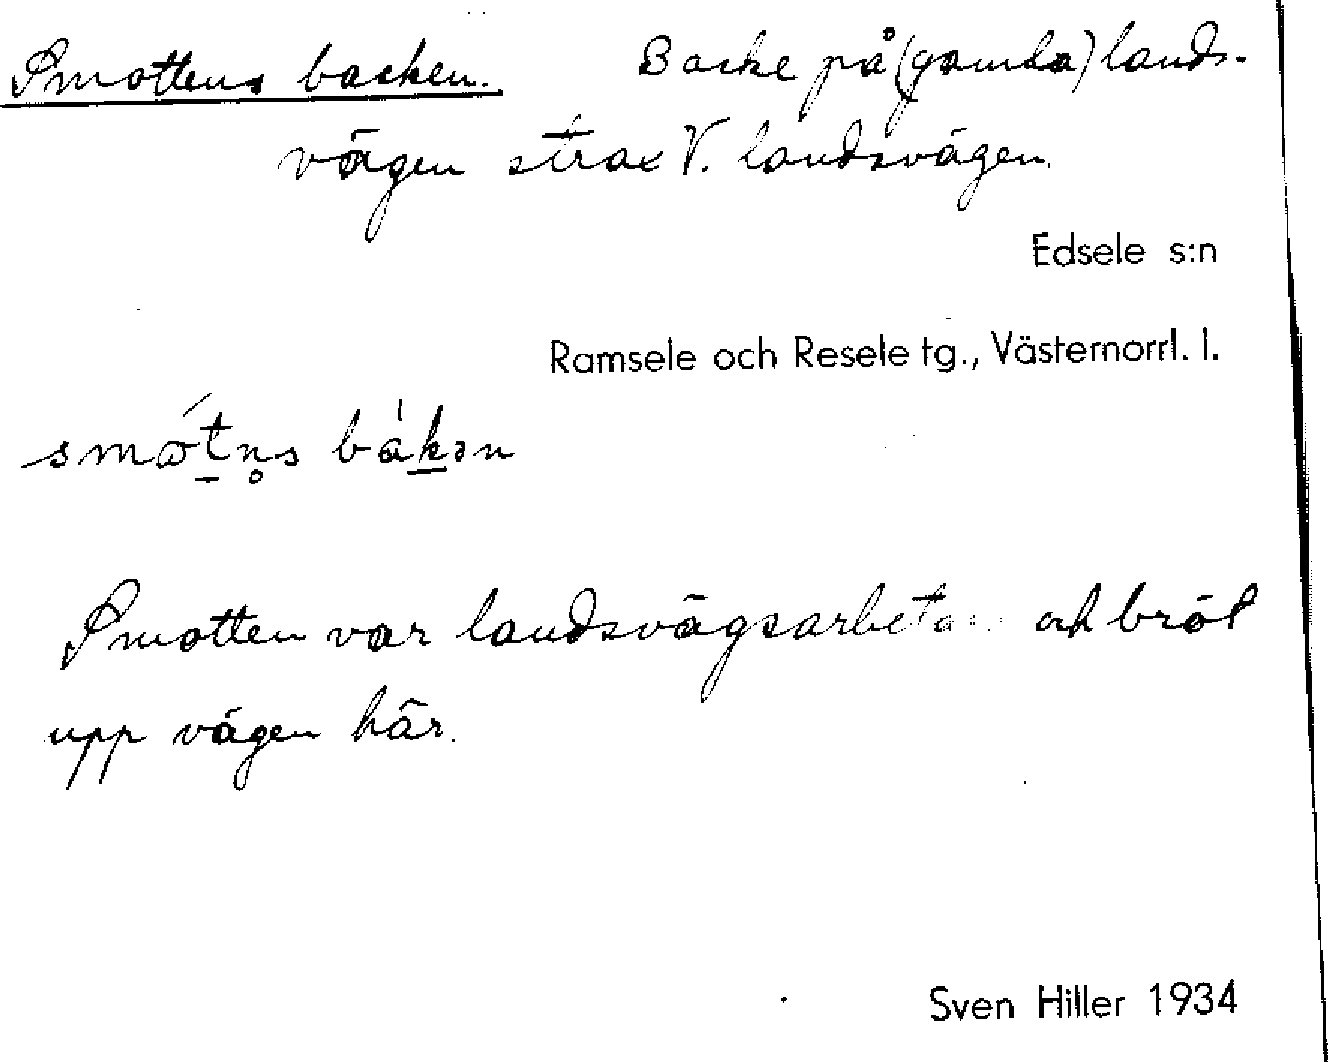 Smottens backen. Backe på (gamla) lands-
vägen strax V. landsvägen.
Edsele s:n
Ramsele och Resele tg., Västernorrl. l.
smót̲n̥s bák̲ən
Smotten var landsvägsarbetare och bröt
upp vägen här.
Sven Hiller 1934